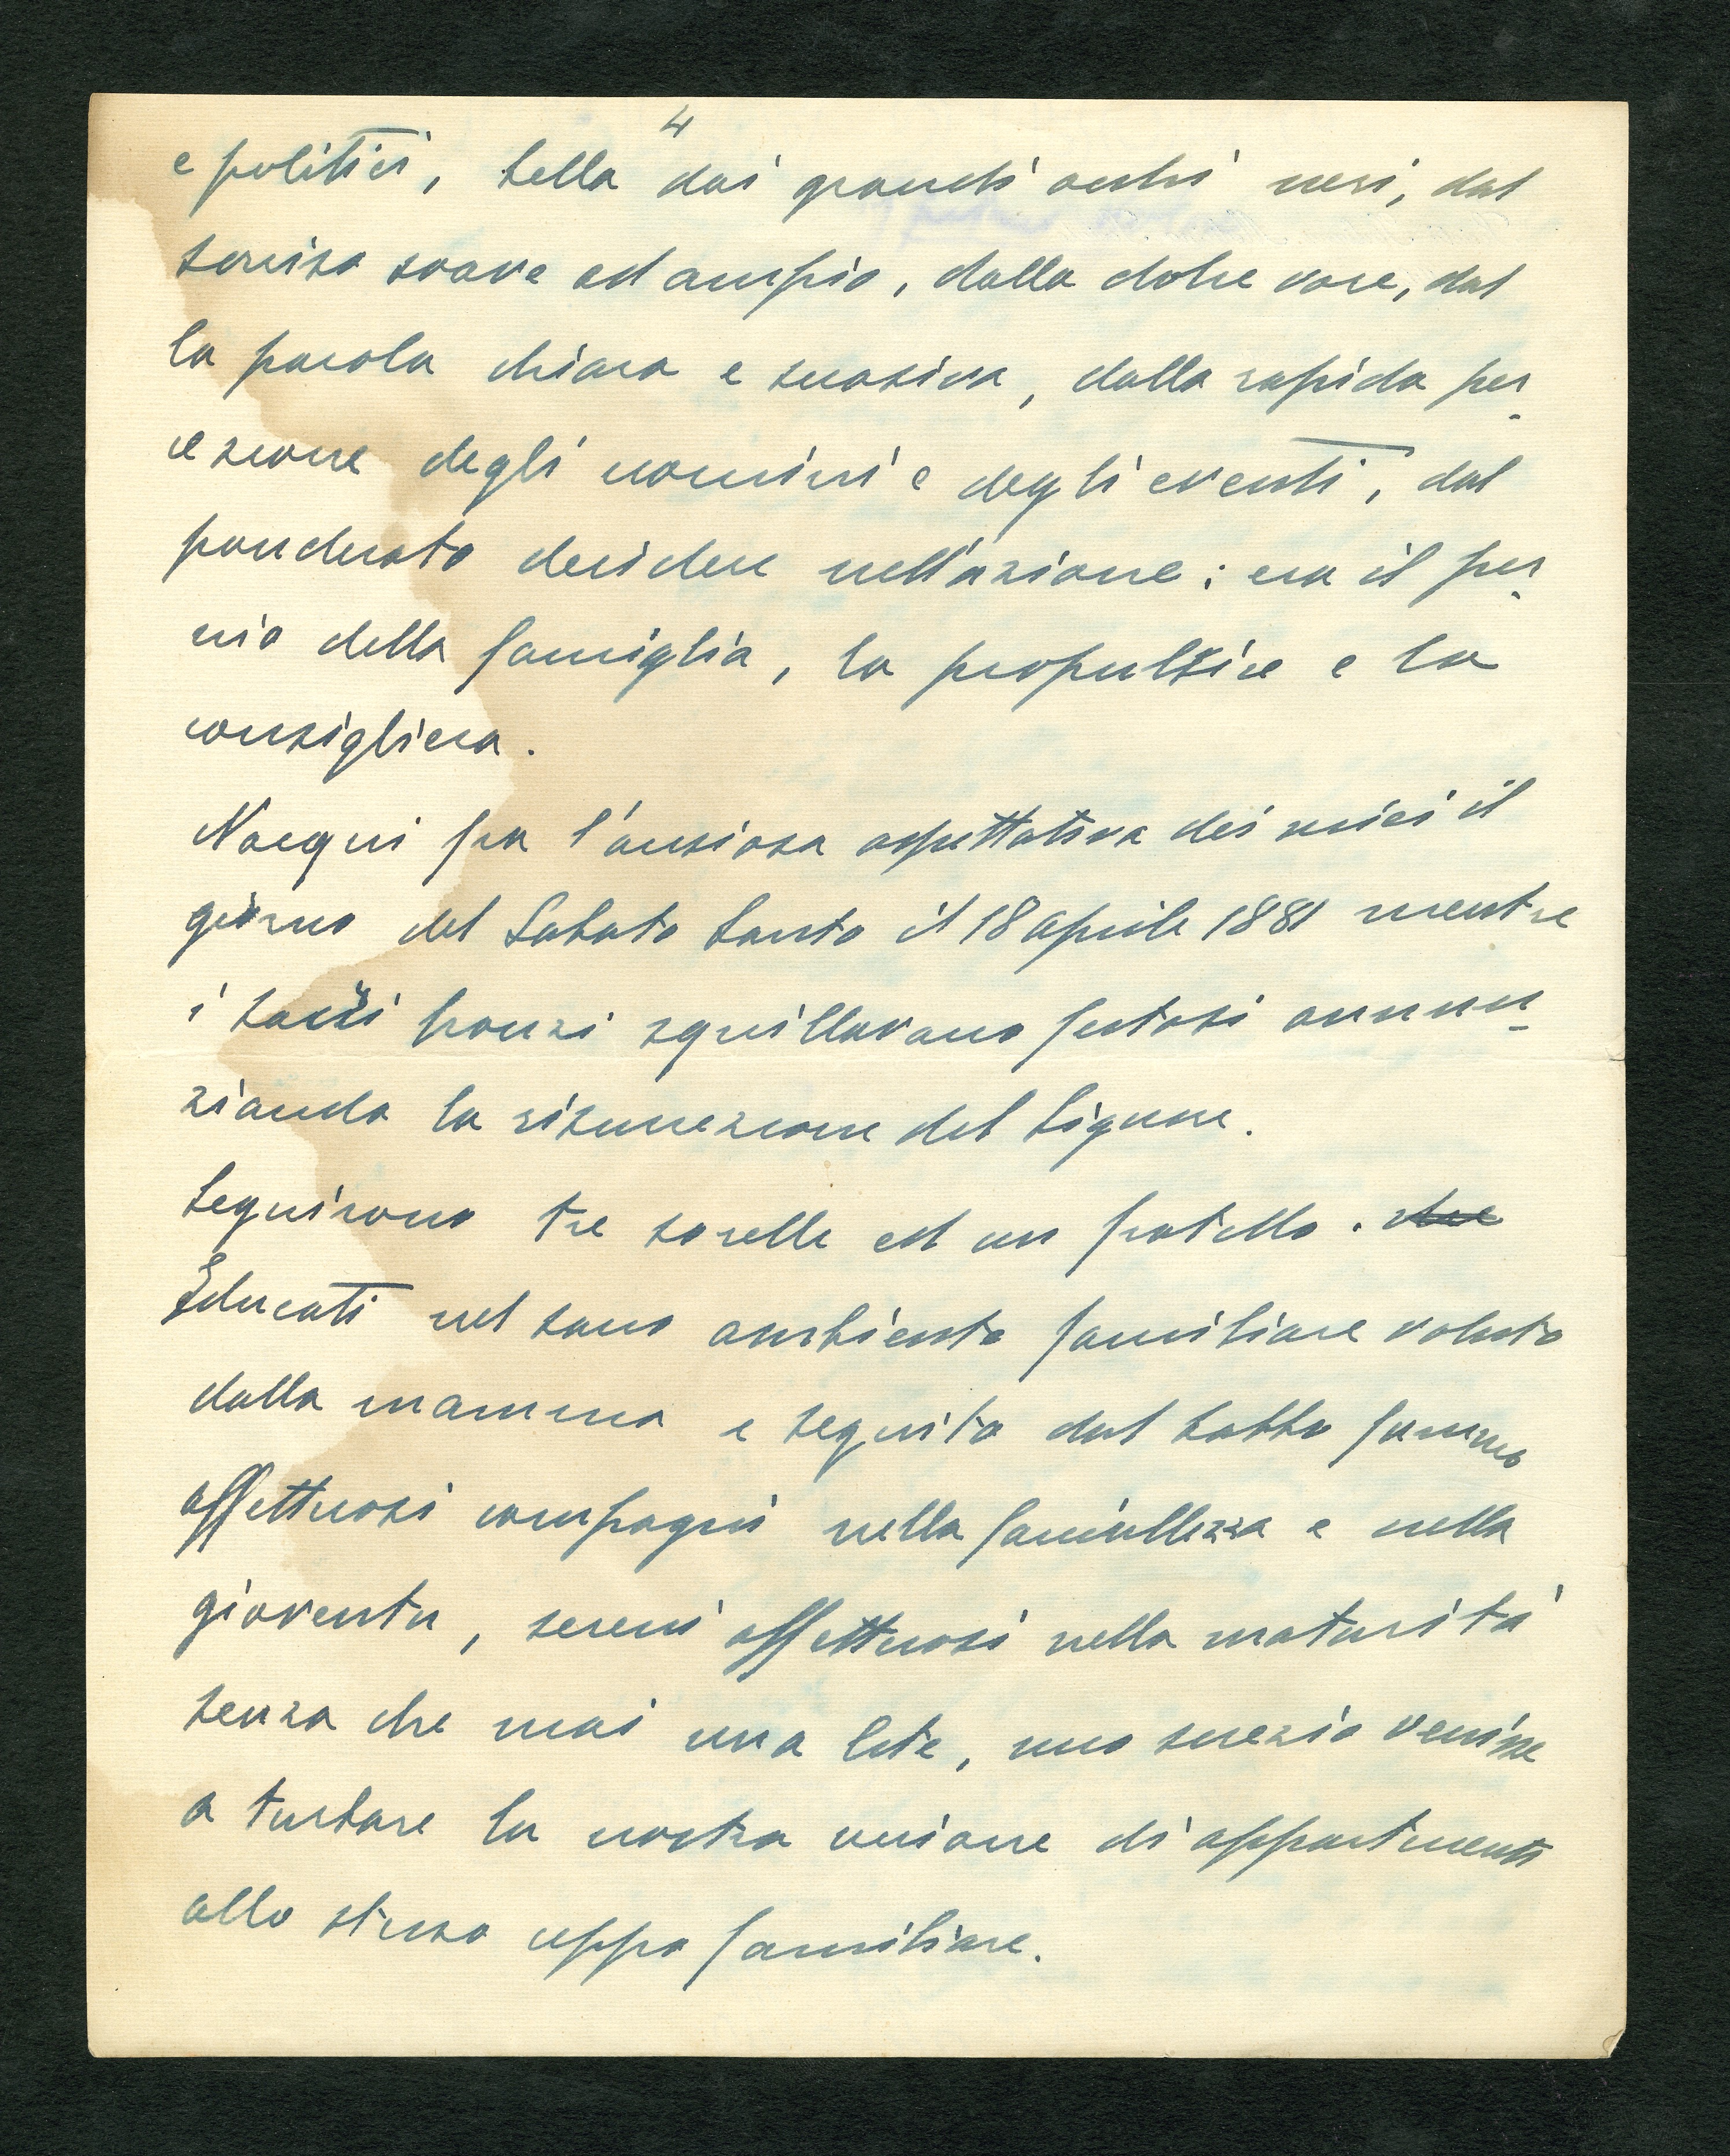 4
e politici, bella dai grandi occhi neri, dal
sorriso soave ed ampio, dalla dolce voce, dal
la parola chiara e suasiva, dalla rapida per
cezione degli uomini e degli eventi, dal
ponderato decidere nell'azione: era il per
nio della famiglia, la propulsice e la
consigliera.
Nacqui fra l'ansiosa aspettativa dei miei il
giorno del Sabato Santo il 18 aprile 1881 mentre
i sacri bronzi squillavano festosi annun
ziando la risurrezione del Signore.
Seguirono tre sorelle ed un fratello. che
Educati nel sano ambiente familiare voluto
dalla mamma e seguito dal babbo fummo
affettuosi compagni nella fanciullezza e nella
gioventu, sereni affettuosi nella maturità
senza che mai una lite, uno screzio venisse
a turbare la nostra unione di appartenenti
allo stesso ceppo familiare.